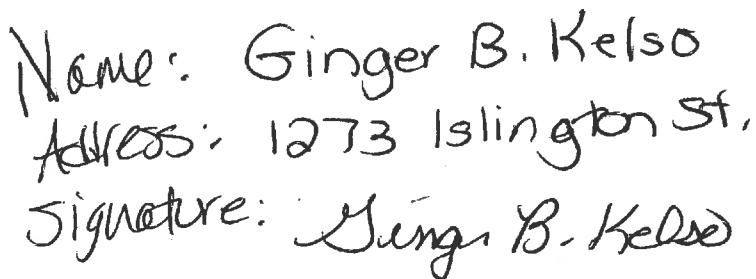 Name: Ginger B. Kelso
Address: 1273 Islington St.
Signature: Ginger B. Kelso